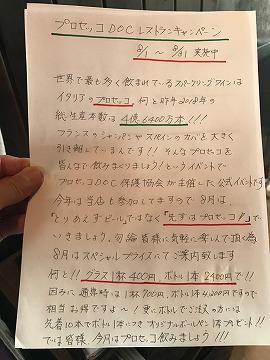 プロセッコDOCレストランキャンペーン
8/1 ~ 8/31 実施中
世界で最も多く飲まれているスパークリングワインは
イタリアのプロセッコ。何と昨年2018年の
総生産本数は4億6400万本!!!
フランスのシャンパンやスペインのカバを大きく
引き離しているんです!!そんなプロセッコを
皆んなで飲みまくりましょう!というイベントで
プロセッコDOC保護協会が主催した公式イベントです
今年は当店も参加してますので8月は、
「とりあえずビール」ではなく「先ずはプロセッコ!」で
いきましょう。勿論皆様に気軽に楽しんで頂く為
8月はスペシャルプライスにてご案内致します
何と!!グラス1杯400円、ボトル1本2400円で!!
因みに通常時は1杯700円、ボトル1本4,200円ですので
相当お得ですよ~!更にボトルでご注文の方には
先着10本でボトル1本につきオリジナルボールペン1本プレゼント!!
では皆様、今月はプロセッコ飲みましょう!!!